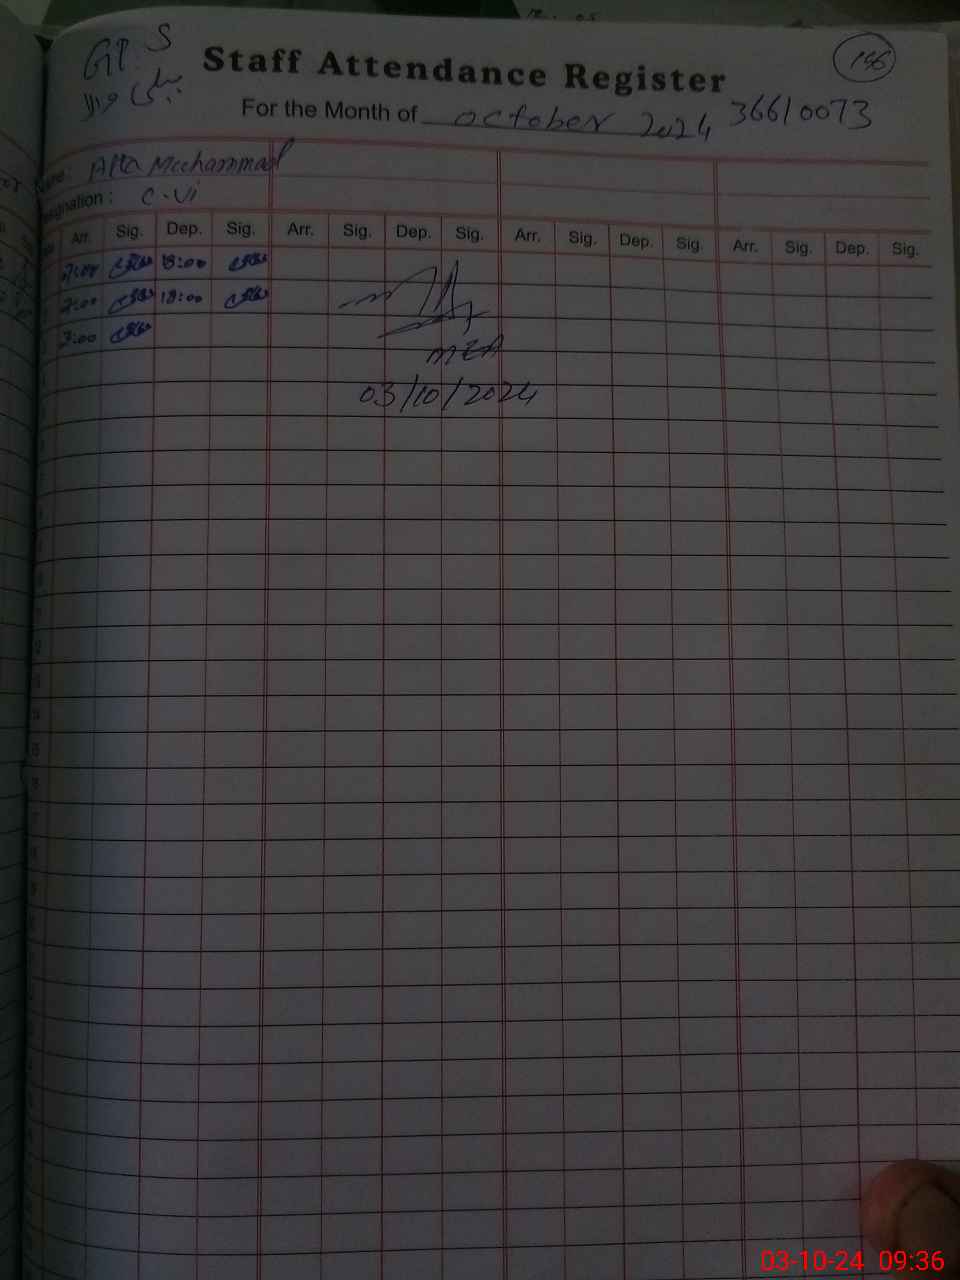 G.P.S
Staff Attendance Register
146
For the Month of October 2024 36610073
Name: Atta Muhammad
Designation: C-VI
Arr. Sig. Dep. Sig. Arr. Sig. Dep. Sig. Arr. Sig. Dep. Sig. Arr. Sig. Dep. Sig.
7:00 18:00
7:00 18:00
7:00
MEA
03/10/2024
03-10-24 09:36